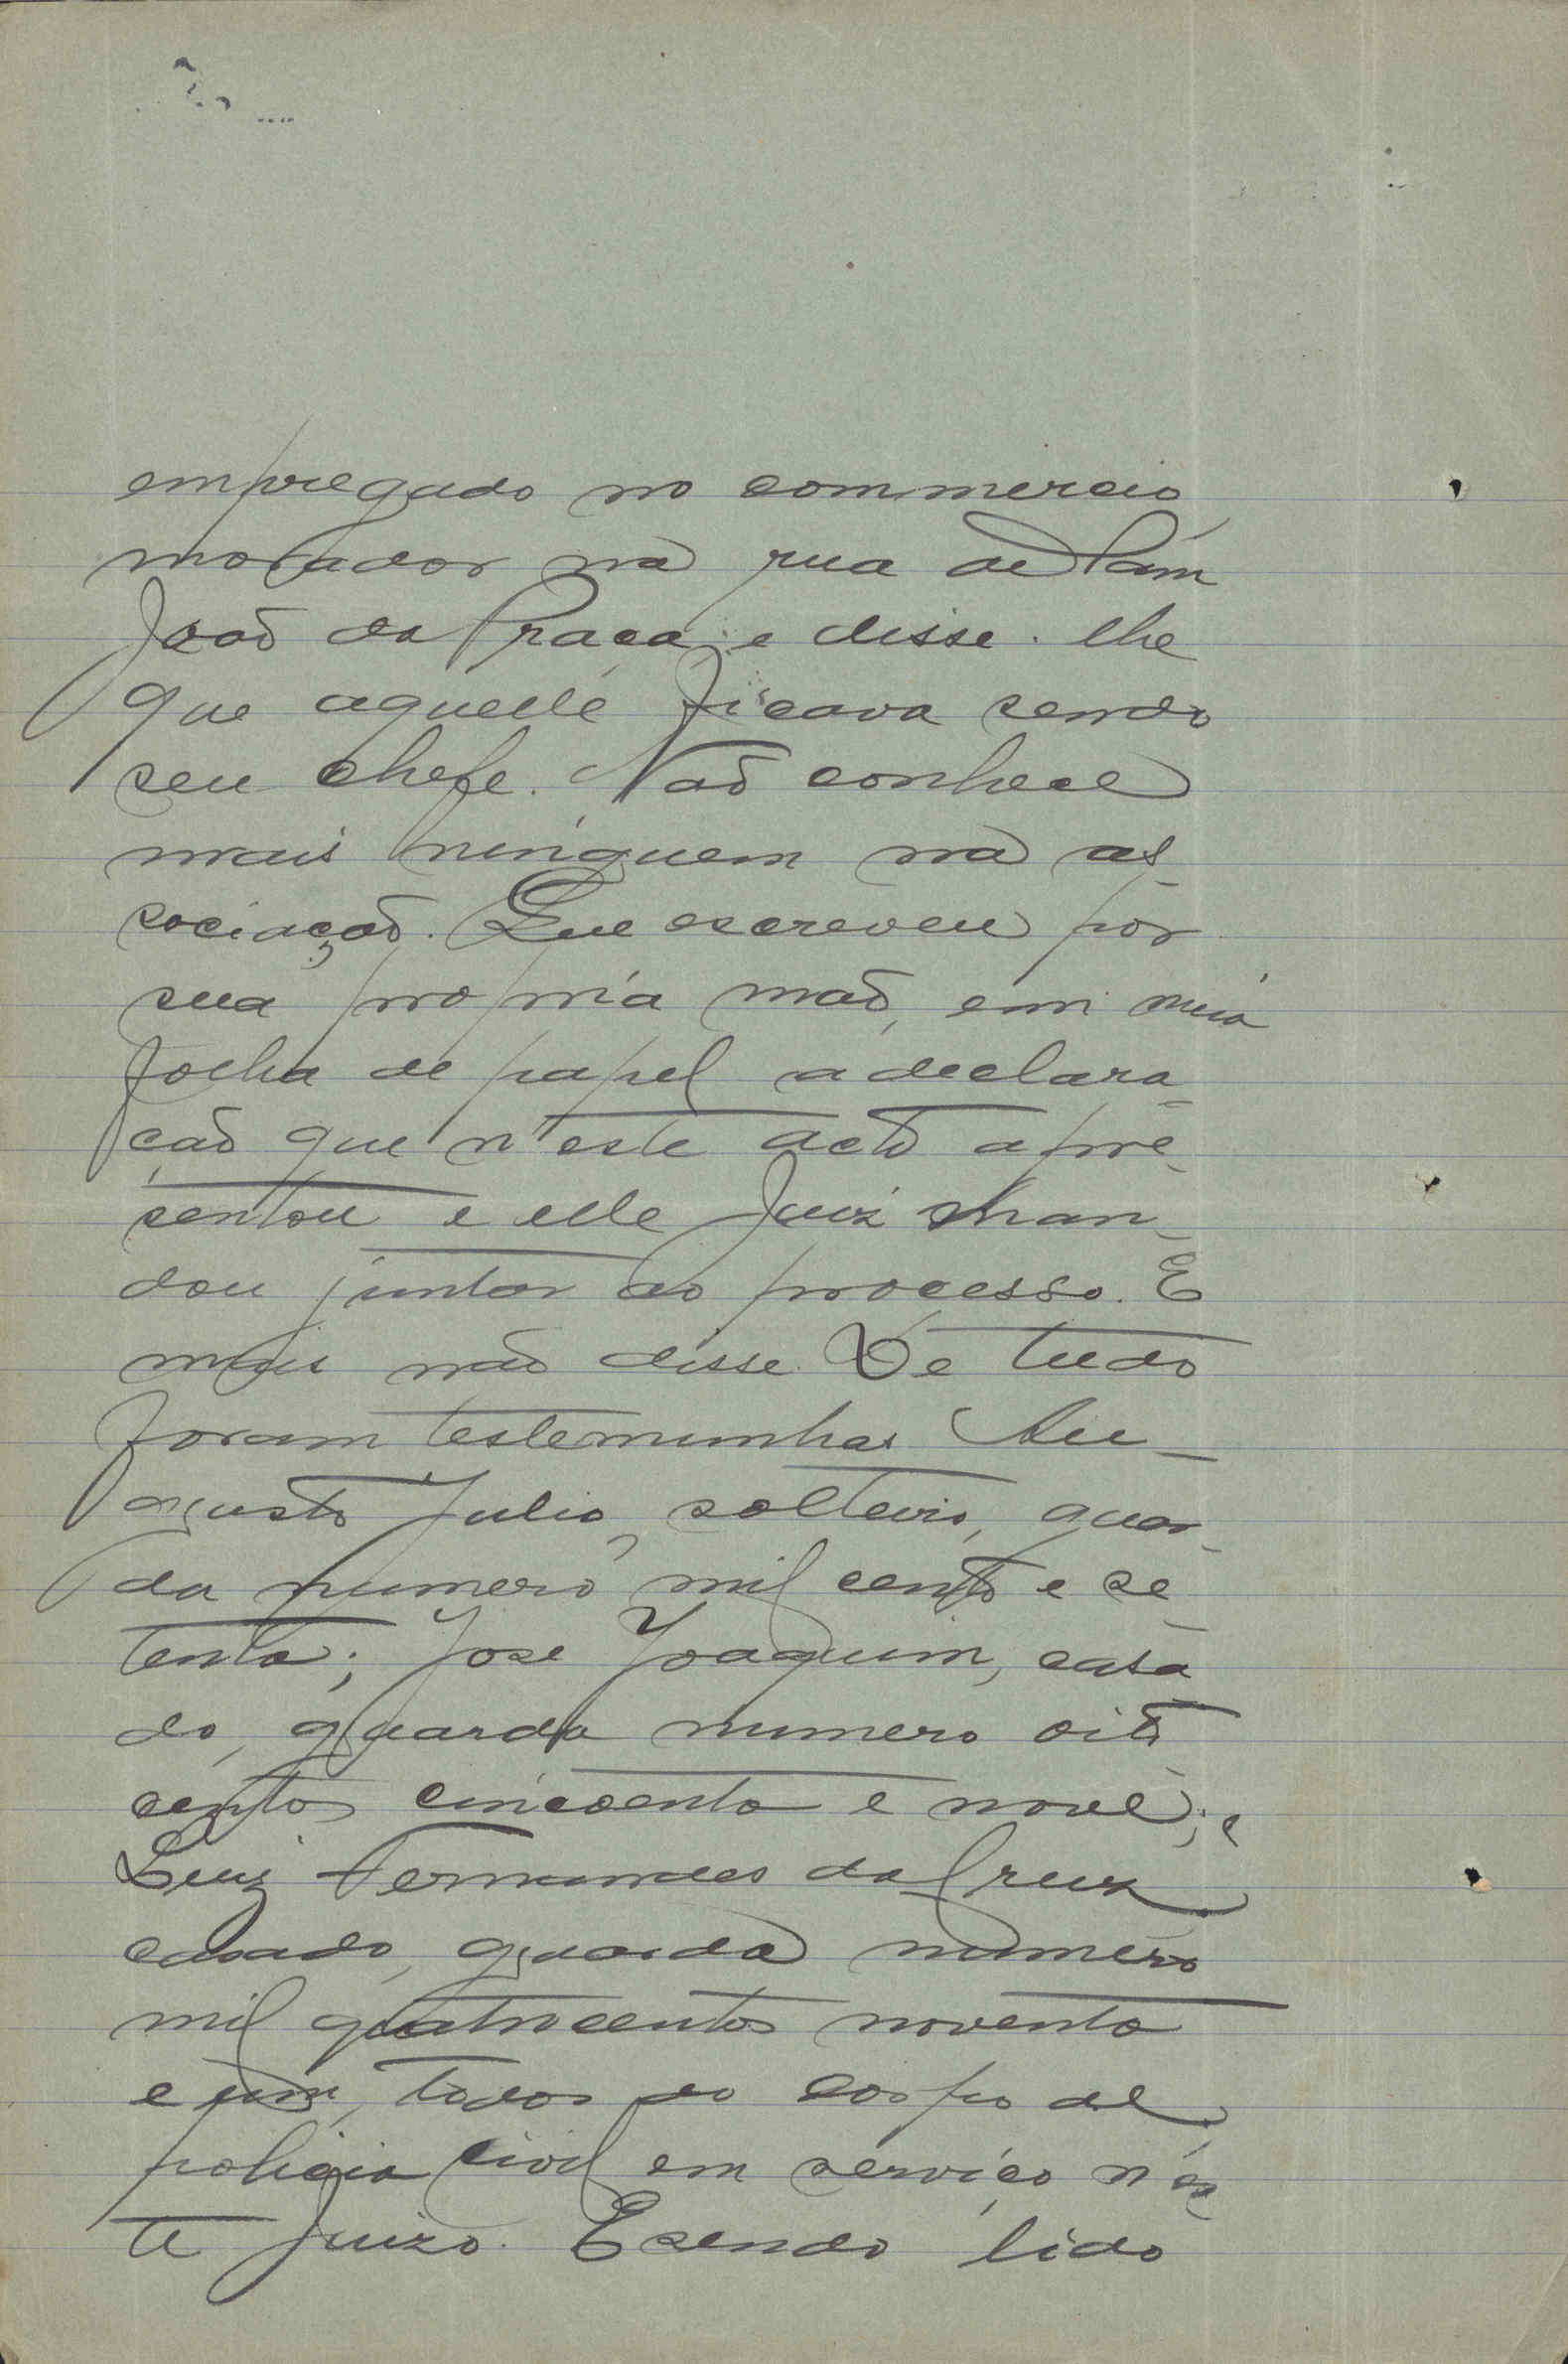 empregado no commercio
morador na rua de Sam
João da Praça e disse-lhe
que aquelle ficava sendo
seu chefe. Não conhece
mais ninguem na as-
sociação. Que escreveu por
sua propria mão, em meia
folha de papel a declara-
ção que n'este acto apre-
sentou e elle Juiz man-
dou juntar ao processo. E
mais não disse. De tudo
foram testemunhas Au-
gusto Julio, solteiro, guar-
da numero mil cento e se-
tenta; José Joaquim, casa-
do, guarda numero oito
centos cincoenta e nove; e
Luiz Fernandes da Cruz,
casado, guarda numero
mil quatrocentos noventa
e um, todos do corpo de
policia civil em serviço n'es-
te juizo. E sendo lido